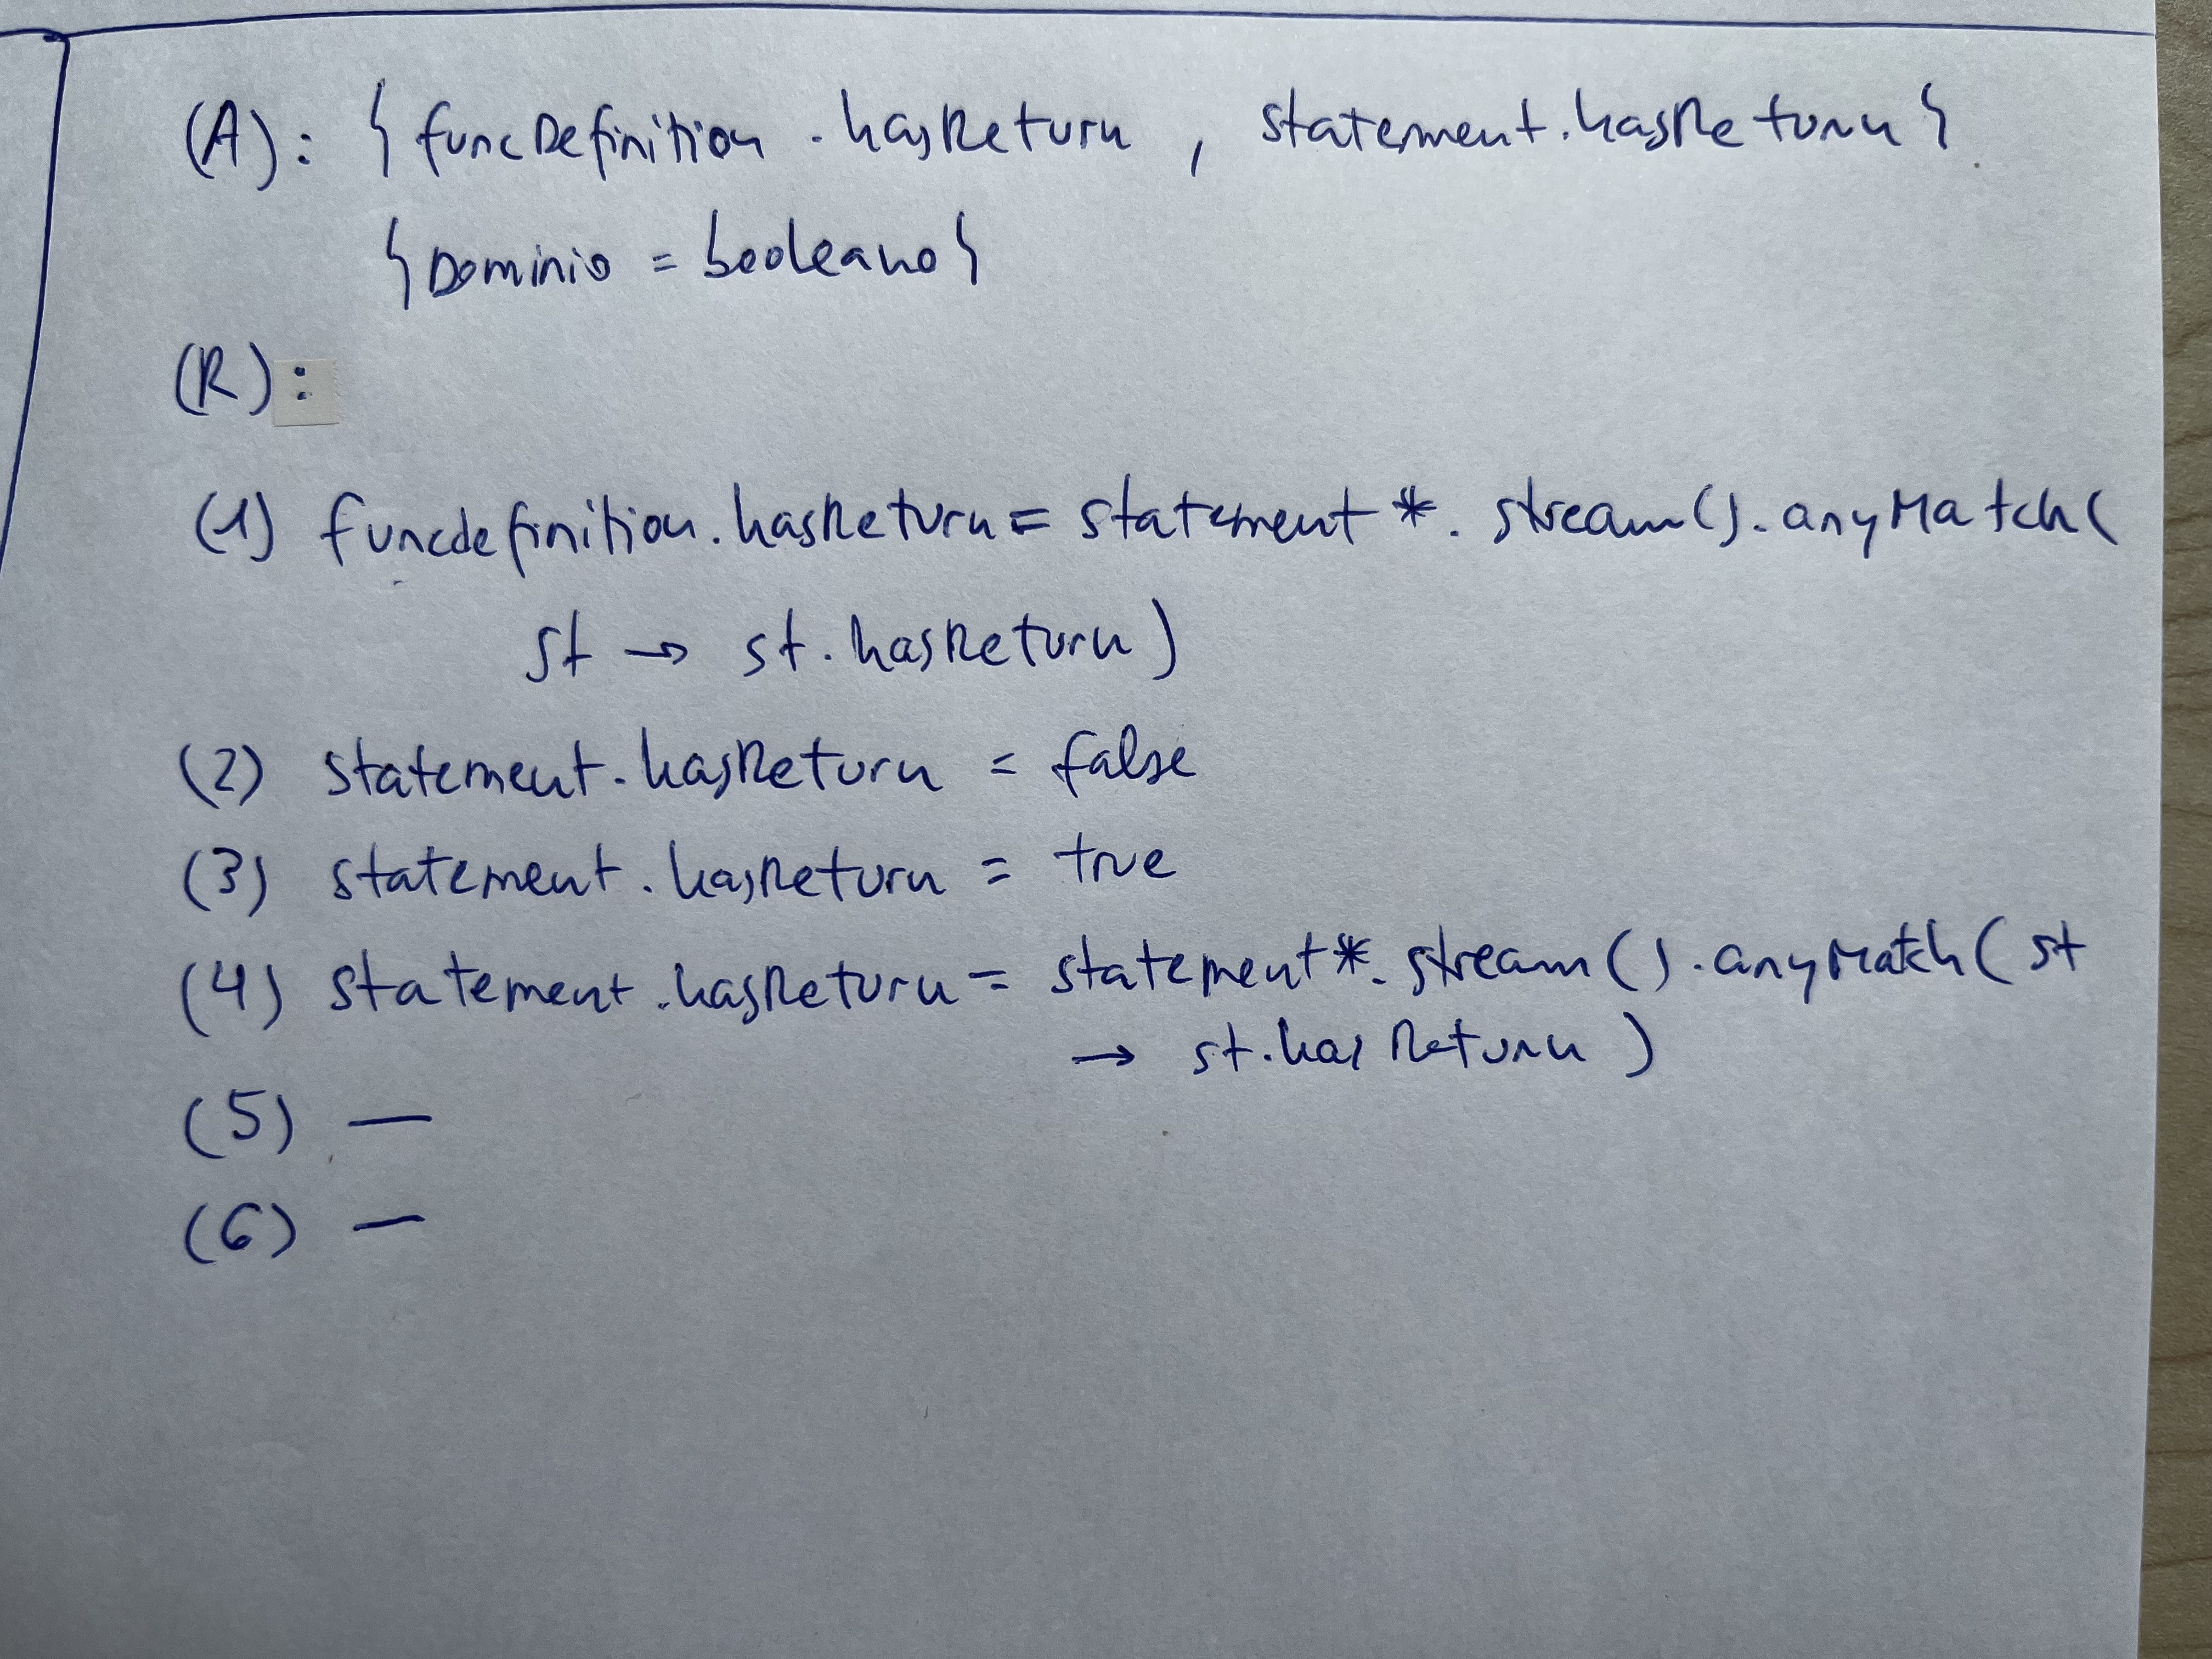 (A): { funcDefinition.hasReturn, statement.hasReturn }
{ Dominio = booleano }
(R):
(1) funcdefinition.hasReturn = statement*.stream().anyMatch(
st → st.hasReturn)
(2) statement.hasReturn = false
(3) statement.hasReturn = true
(4) statement.hasReturn = statement*.stream().anyMatch(st
→ st.hasReturn)
(5) —
(6) —